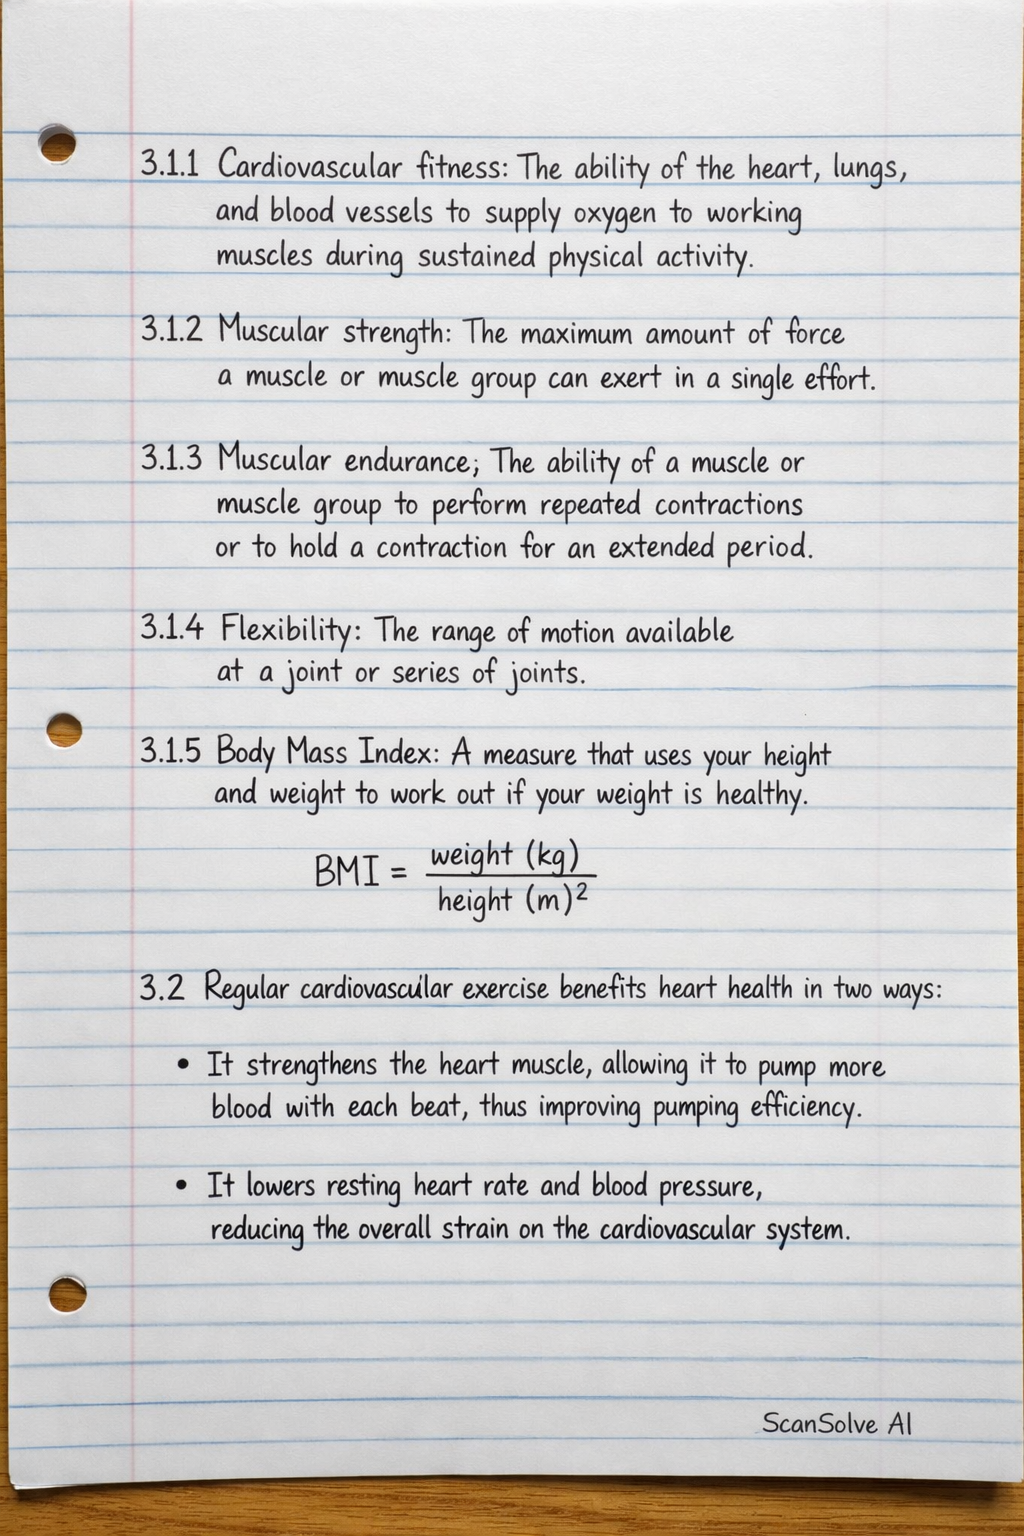 3.1.1 Cardiovascular fitness: The ability of the heart, lungs,
and blood vessels to supply oxygen to working
muscles during sustained physical activity.
3.1.2 Muscular strength: The maximum amount of force
a muscle or muscle group can exert in a single effort.
3.1.3 Muscular endurance; The ability of a muscle or
muscle group to perform repeated contractions
or to hold a contraction for an extended period.
3.1.4 Flexibility: The range of motion available
at a joint or series of joints.
3.1.5 Body Mass Index: A measure that uses your height
and weight to work out if your weight is healthy.
BMI = weight (kg)
height (m)²
3.2 Regular cardiovascular exercise benefits heart health in two ways:
• It strengthens the heart muscle, allowing it to pump more
blood with each beat, thus improving pumping efficiency.
• It lowers resting heart rate and blood pressure,
reducing the overall strain on the cardiovascular system.
ScanSolve AI